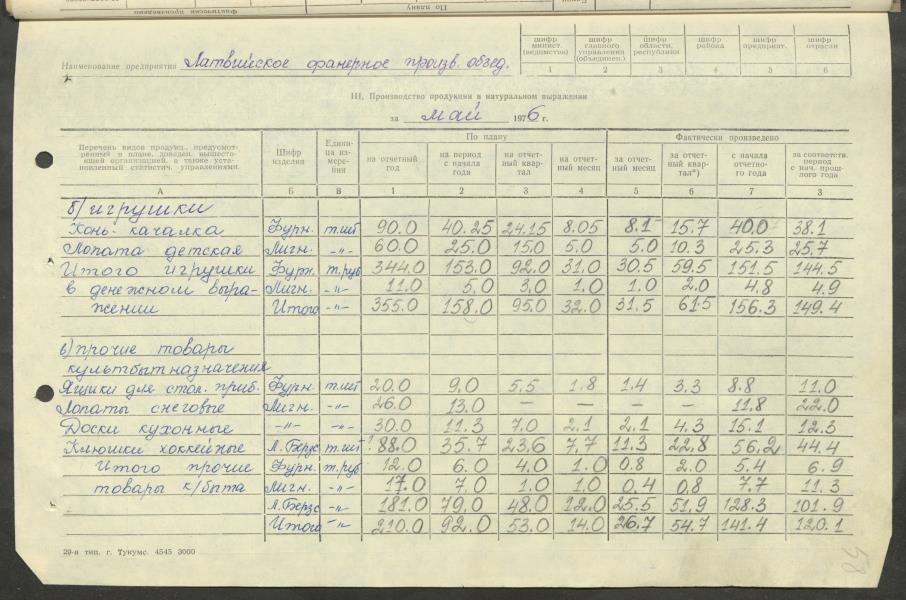 Фактически произведено По плану
Наименование предприятия Латвийское фанерное произв. объед.
шифр минист. (ведомства) шифр главного управления (объединен.) шифр области, республики шифр района шифр предприят. шифр отрасли
1 2 3 4 5 6
III. Производство продукции в натуральном выражении
за май 1976 г.
Перечень видов продукц. предусмотренный в плане, доведен. вышестоящей организацией, а также установленный статистич. управлениями Шифр изделия Единица измерения По плану Фактически произведено
на отчетный год на период с начала года на отчет. квартал на отчетный месяц за отчетный месяц за отчет. квартал*) с начала отчетного года за соответств. период с нач. прошлого года
А Б В 1 2 3 4 5 6 7 3
б) игрушки
Конь-качалка Фурн. т.шт 90.0 40.25 24.15 8.05 8.1 15.7 40.0 38.1
Лопата детская Лигн. -"- 60.0 25.0 15.0 5.0 5.0 10.3 25.3 25.7
Итого игрушки Фурн. т.руб 344.0 153.0 92.0 31.0 30.5 59.5 151.5 144.5
в денежном выра- Лигн. -"- 11.0 5.0 3.0 1.0 1.0 2.0 4.8 4.9
жении Итого -"- 355.0 158.0 95.0 32.0 31.5 61.5 156.3 149.4
в) прочие товары
культбытназначения
Ящики для стол. приб. Фурн. т.шт 20.0 9.0 5.5 1.8 1.4 3.3 8.8 11.0
Лопаты снеговые Лигн. -"- 26.0 13.0 — — — — 11.8 22.0
Доски кухонные -"- -"- 30.0 11.3 7.0 2.1 2.1 4.3 15.1 12.3
Клюшки хоккейные Л.Берзс т.шт 88.0 35.7 23.6 7.7 11.3 22.8 56.2 44.4
Итого прочие Фурн. т.руб 12.0 6.0 4.0 1.0 0.8 2.0 5.4 6.9
товары к/быта Лигн. -"- 17.0 7.0 1.0 1.0 0.4 0.8 7.7 11.3
Л.Берзс -"- 181.0 79.0 48.0 12.0 25.5 51.9 128.3 101.9
Итого -"- 210.0 92.0 53.0 14.0 26.7 54.7 141.4 120.1
29-я тип. г. Тукумс. 4545 3000
58